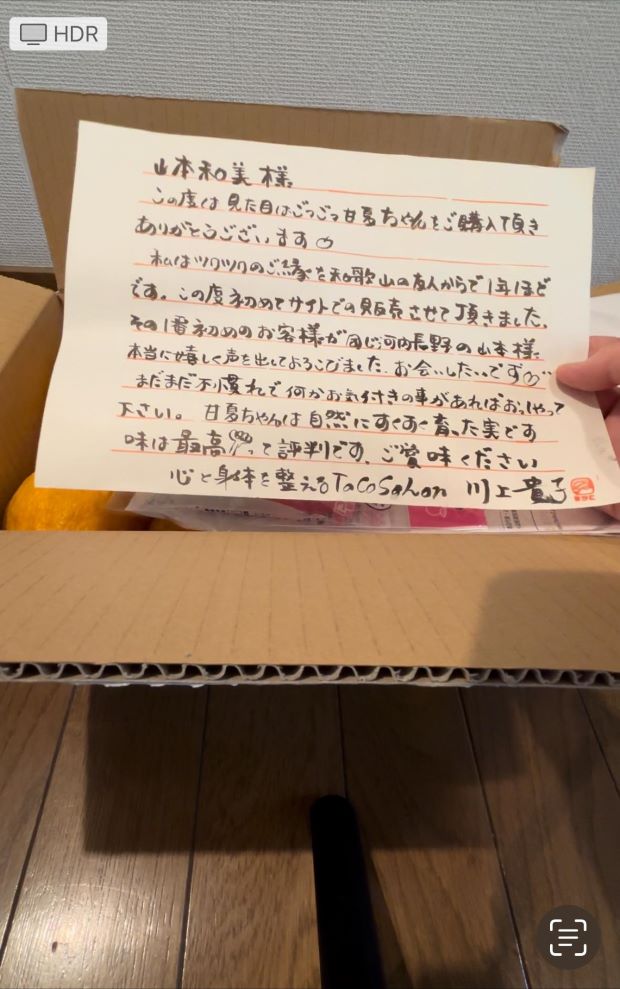 HDR
山本和美様
この度は見た目はごつごつ甘夏ちゃんをご購入頂き
ありがとうございます
私はツクツクのご縁を和歌山の友人からで1年ほど
です。この度初めてサイトでの販売させて頂きました。
その1番初めのお客様が同じ河内長野の山本様
本当に嬉しく声を出しておろこびました。お会いしたいです
まだまだ不慣れで何かお気付きの事があればおっしゃって
下さい。甘夏ちゃんは自然にすくすく育った実です
味は最高って評判です。ご賞味ください
心と身体を整えるTaCoSaLon 川上貴子